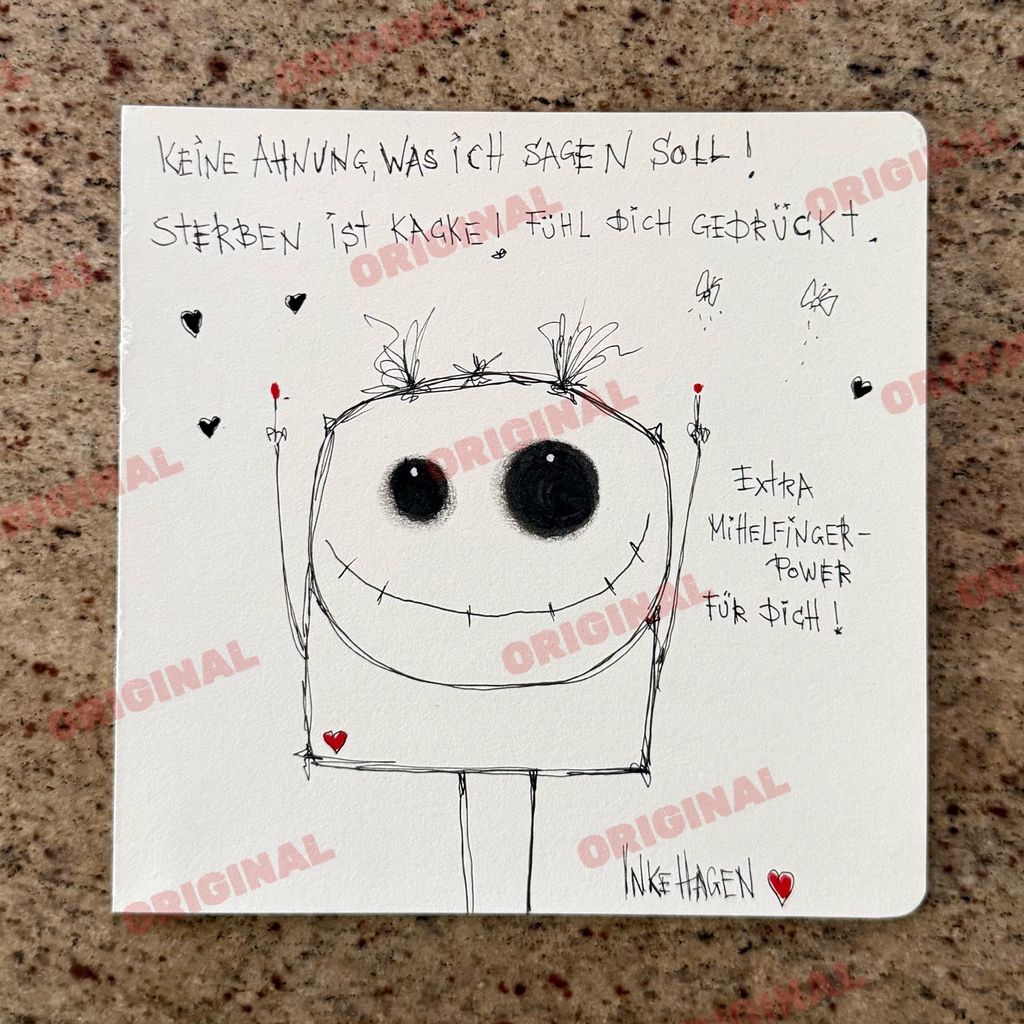 KEINE AHNUNG, WAS ICH SAGEN SOLL!
STERBEN IST KACKE! FÜHL DICH GEDRÜCKT.
EXTRA
MITTELFINGER-
POWER
FÜR DICH!
INKE HAGEN
ORIGINAL
ORIGINAL
ORIGINAL
ORIGINAL
ORIGINAL
ORIGINAL
ORIGINAL
ORIGINAL
ORIGINAL
ORIGINAL
ORIGINAL
ORIGINAL
ORIGINAL